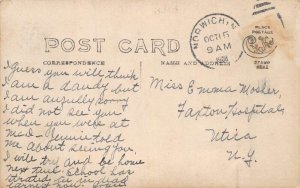 NORWICH, N.Y.
OCT 15
9 AM
POST CARD
CORRESPONDENCE
NAME AND ADDRESS
PLACE
POSTAGE
STAMP
HERE
I guess you will think
I am a dandy but
I am awfully sorry
I did not see you
when you were at
Mc - Jennie told
me about seeing you,
I will try and be home
next time School has
started
Miss Emma Mosher,
Faxton Hospital,
Utica
N.Y.